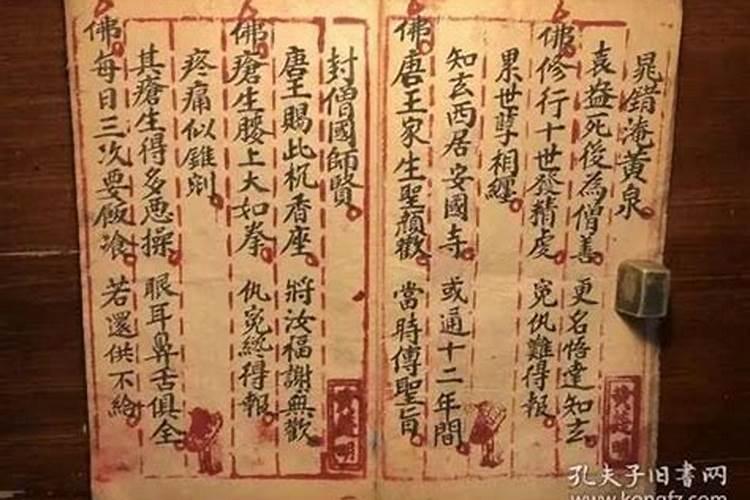 晁錯淹黄泉
袁益死後為僧善 更名悟達知玄
佛修行十世登精處 冤仇難得報
累世孽相纏
知玄西居安國寺 或通十二年間
佛唐王家生聖顏歡 當時傳聖旨
封僧國師賢
唐王賜此机香座 將汝福謝無歡
佛瘡生腰上大如拳 仇冤終得報
疼痛似錐剜
其瘡生得多悪操 眼耳鼻舌俱全
佛每日三次要飯飡 若還供不給
孔夫子旧书网